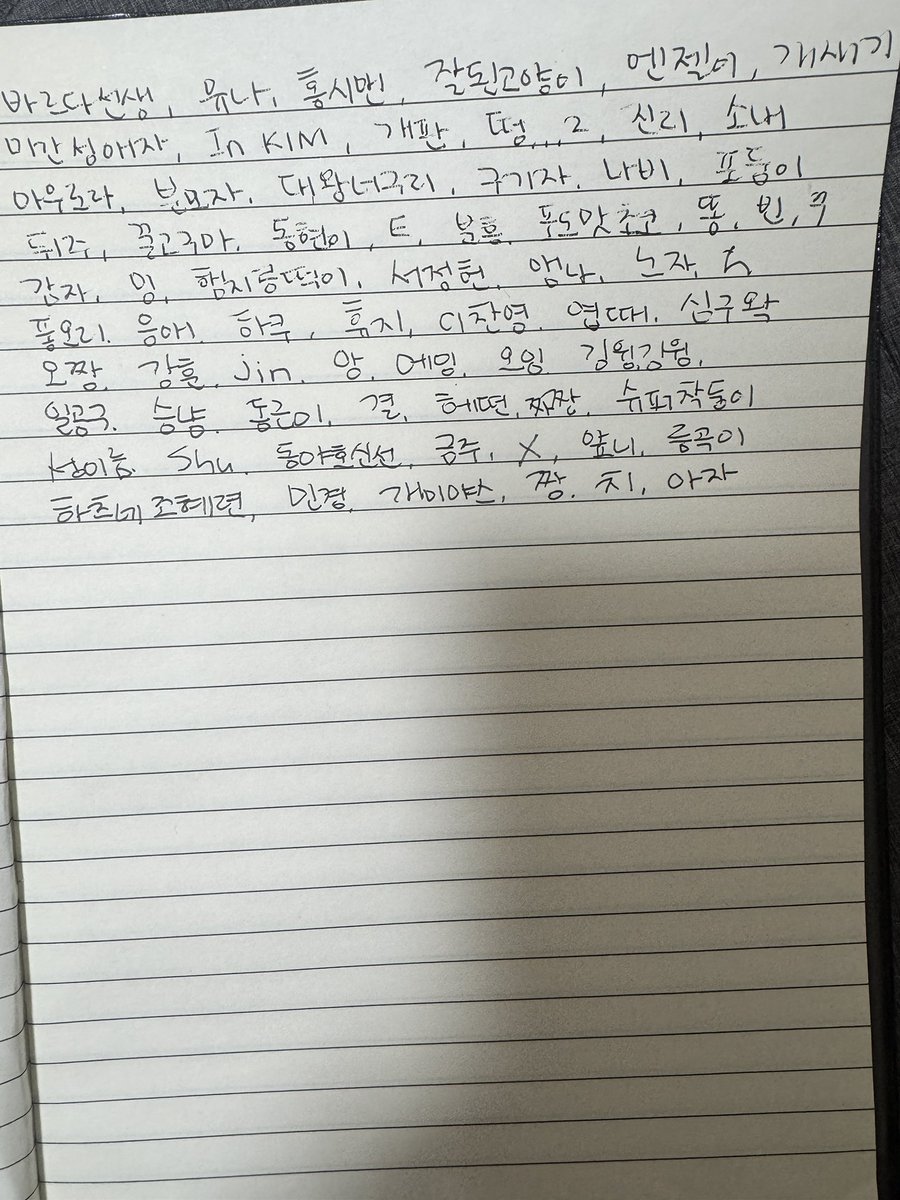 바르다선생, 유나, 홍시맨, 잘된고양이, 엔젤어, 개새기
미간성애자, In KIM, 개판, 떵,,,2, 신리, 소내
아우로라, 분모자, 대왕너구리, 구기자, 나비, 포둥이
튀주, 꿀고구마, 동현이, E, 분홍, 포도맛초코, 똥, 빈,
감자, 잉, 햄지롱떡이, 서정현, 앰나, 노자,
퐁오리, 응애, 하쿠, 휴지, 디찬영, 엽떼, 심구왁
오짱, 강훈, jin, 앙, 에밍, 으잉, 김웡강웡,
일공구, 승냥, 동근이, 결, 헤떤, 짜짱, 슈퍼작둥이
성이름, Shu, 동야호신선, 금주, X, 얖니, 릉곡이
하츠네조혜련, 민경, 개미야스, 짱, 치, 아자